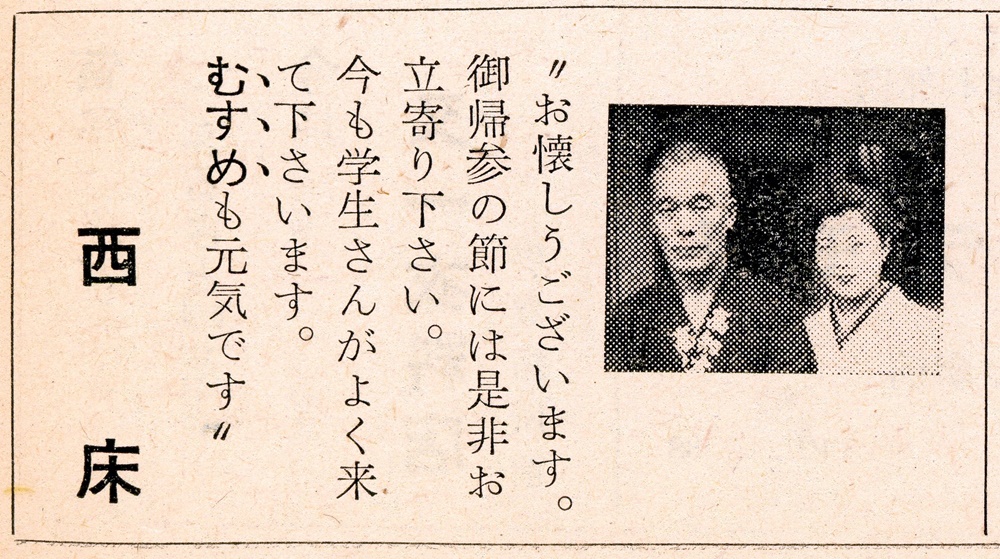 〃お懐しうございます。
御帰参の節には是非お
立寄り下さい。
今も学生さんがよく来
て下さいます。
むすめも元気です〃
西床